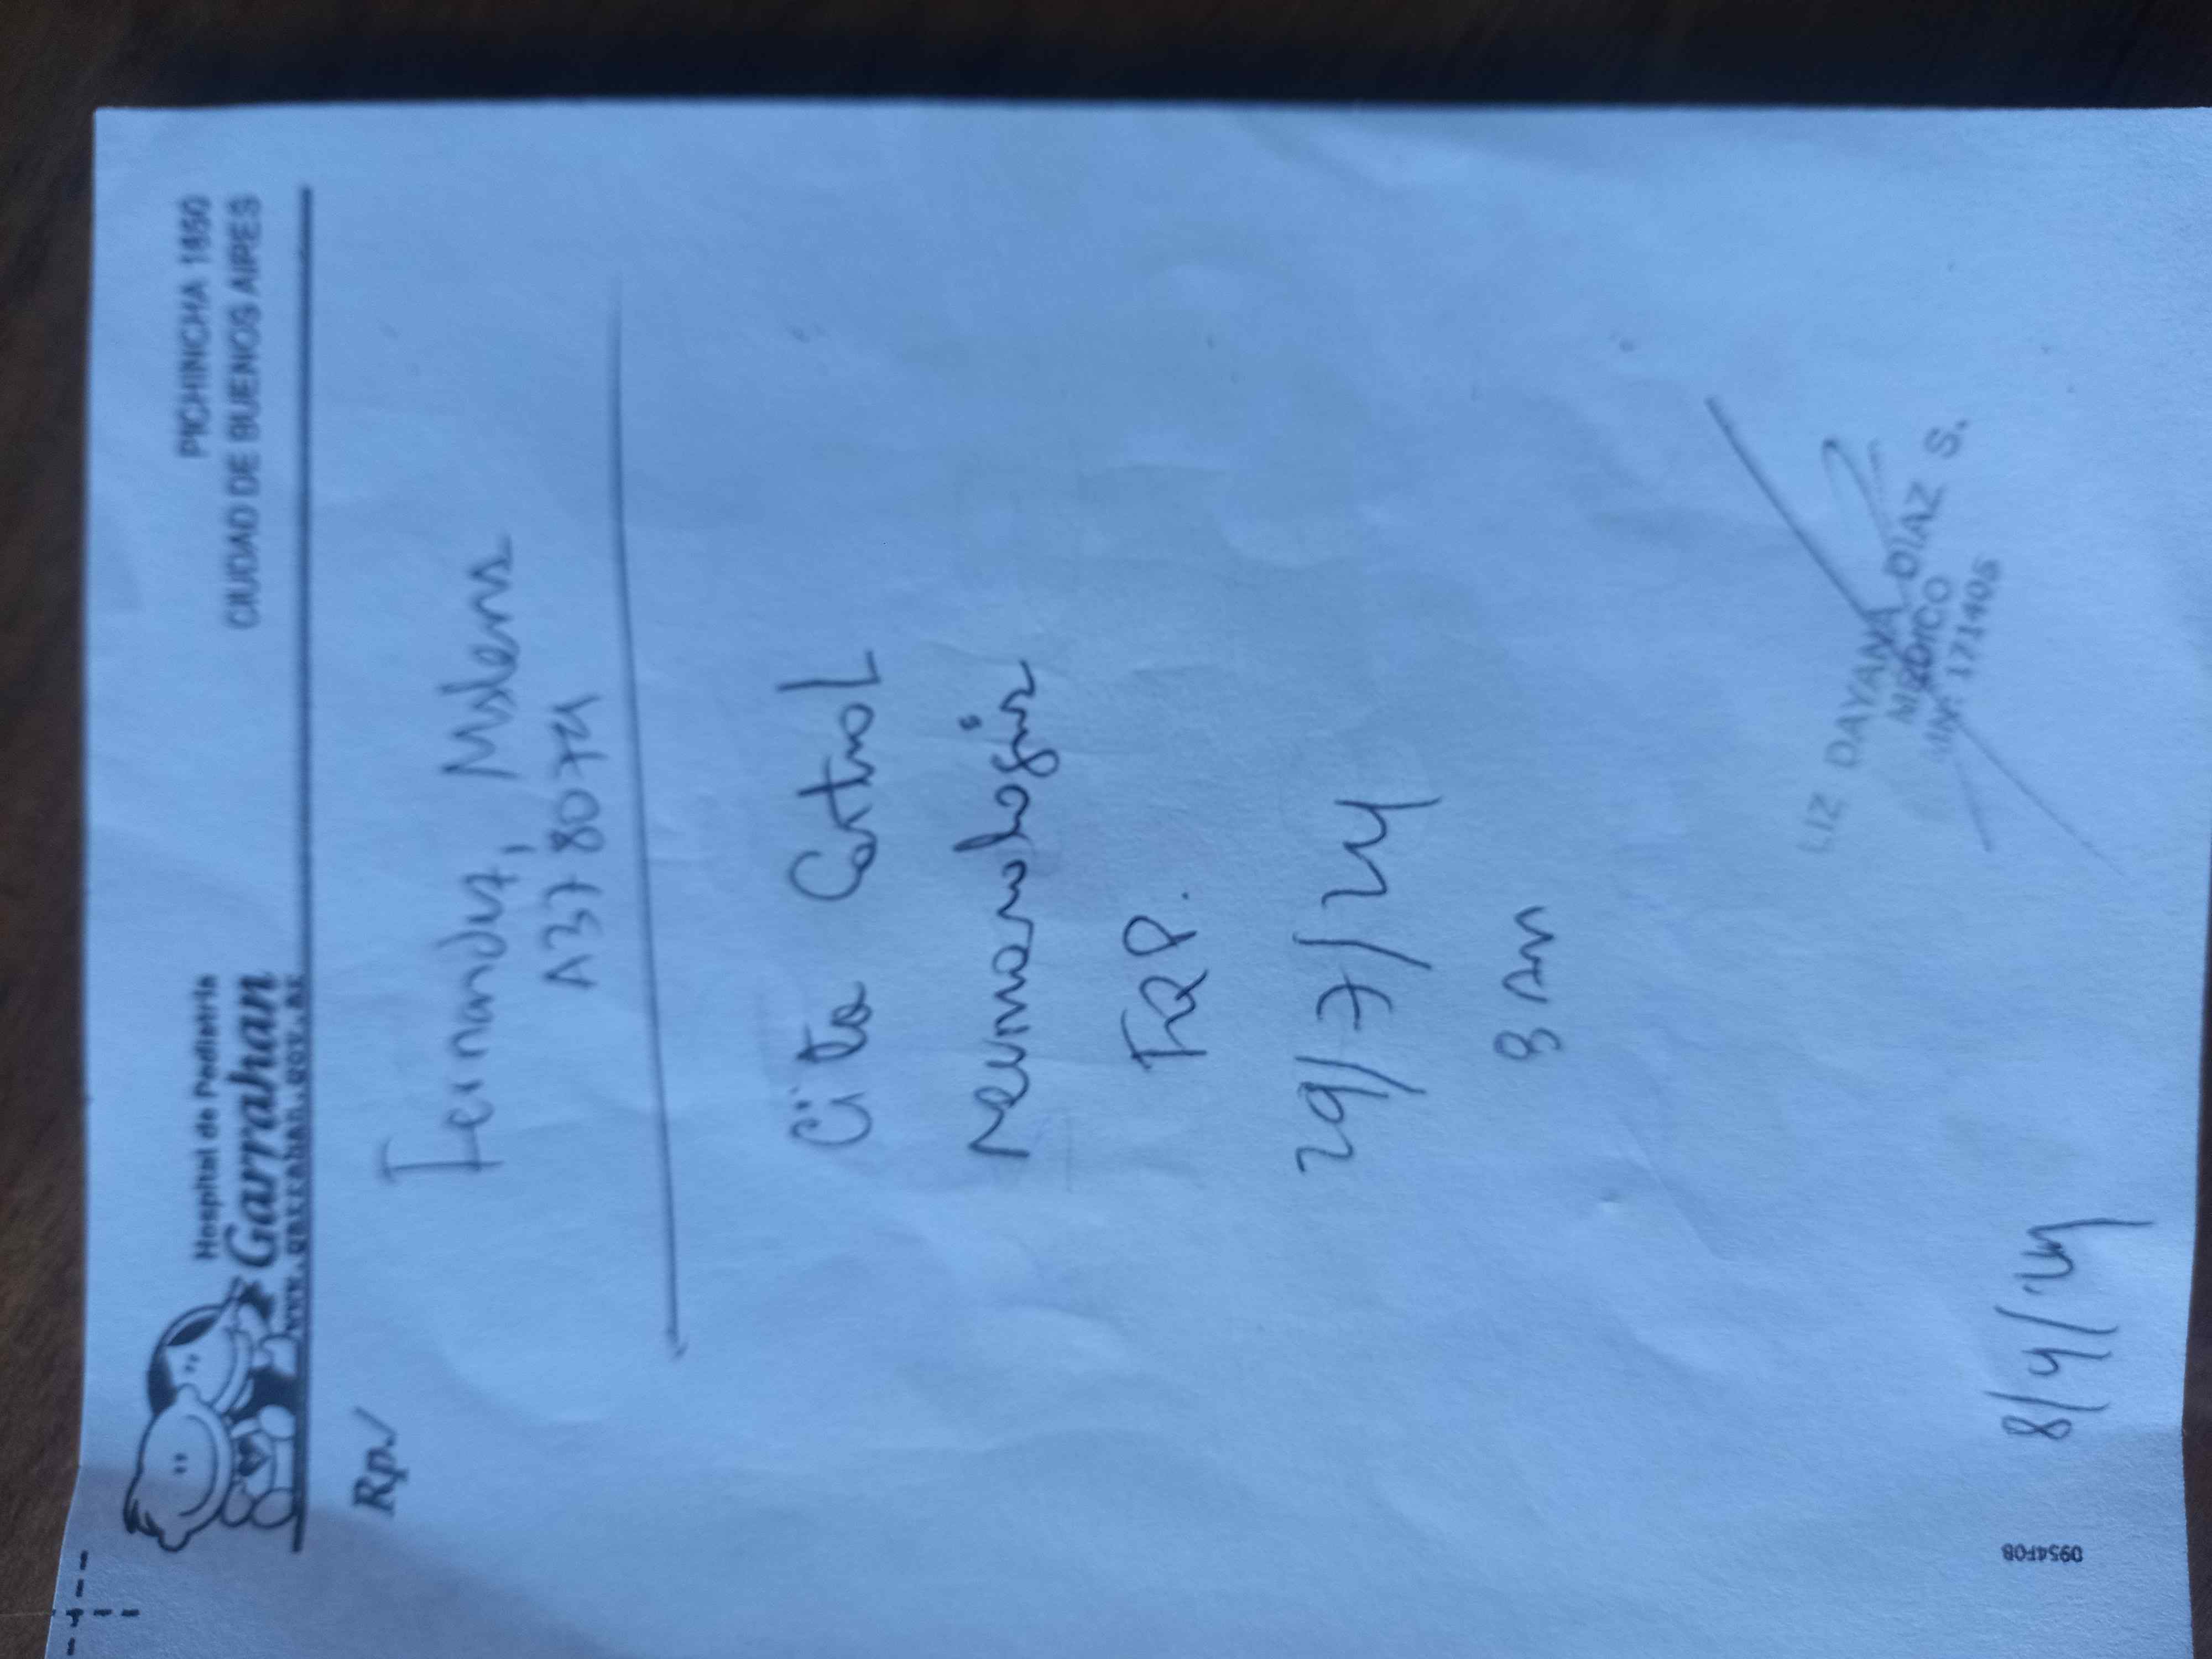 Hospital de Pediatría
Garrahan
www.garrahan.gov.ar
PICHINCHA 1850
CIUDAD DE BUENOS AIRES
Rp./
Fernandez, Malena
A3780774
Cita Control
Neumonologia
29/7/24
8 am
LIZ DAYANA DIAZ S.
MEDICO
MN: 171405
8/4/24
0954F08